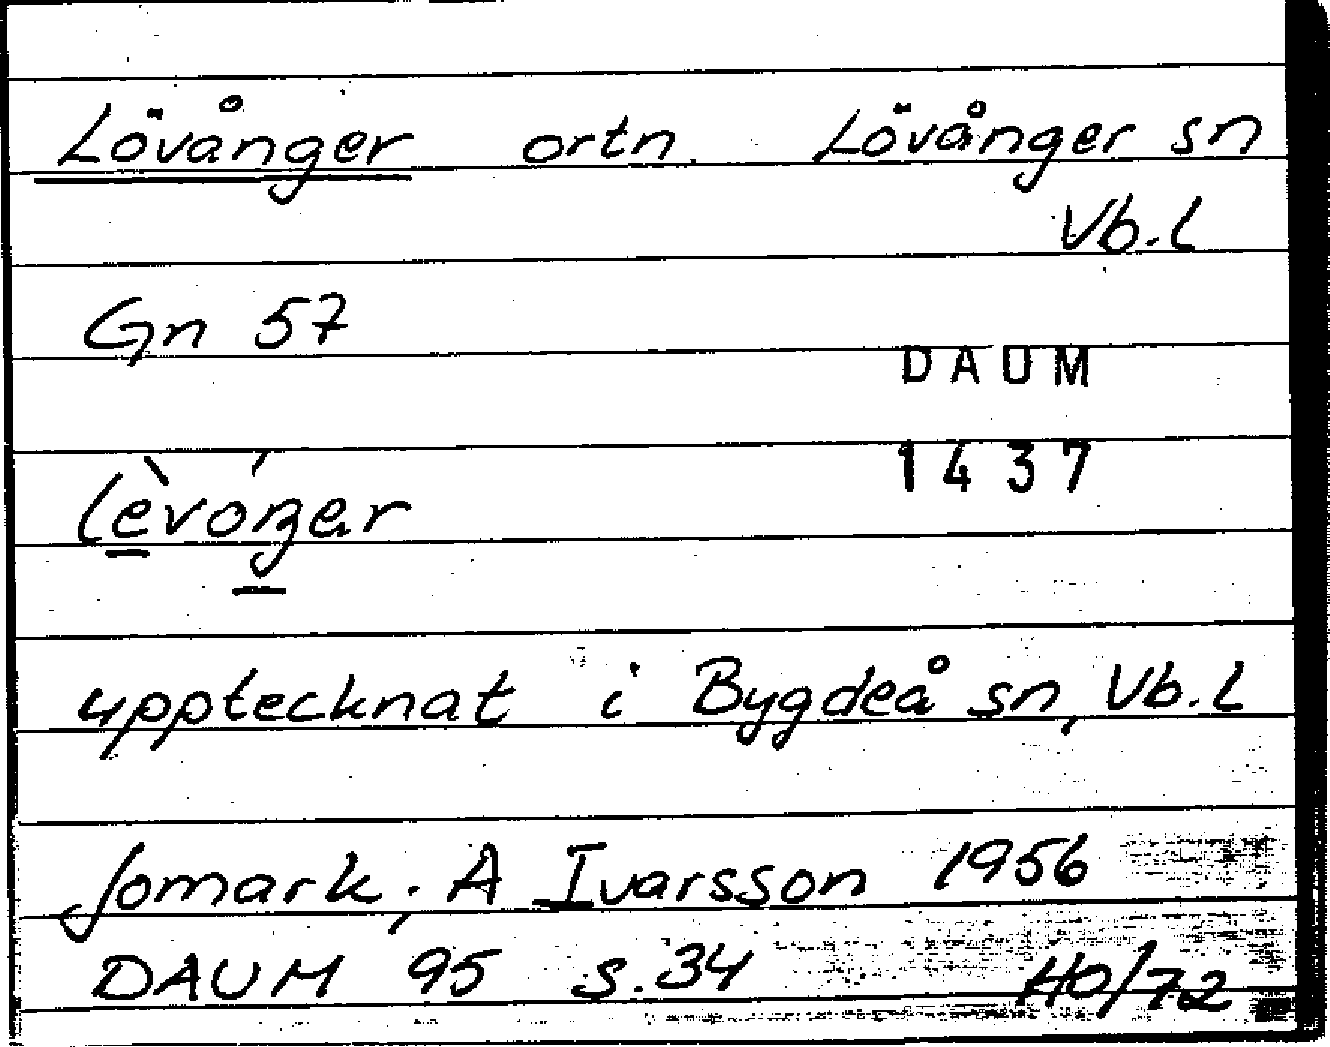 Lövånger ortn. Lövånger sn
Vb.l
Gn 57
DAUM
1437
upptecknat i Bygdeå sn, Vb.l
A Ivarsson 1956
DAUM 95 s.34 HO/72